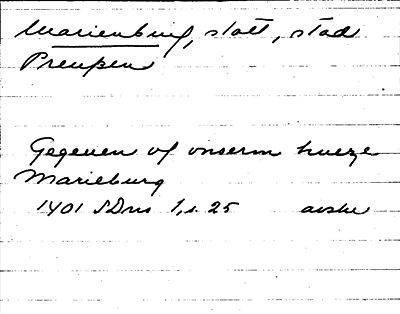 Marienburg, slott, stad
Preußen
Gegeuen vf vnserm hueze
Marieburg
1401 SDns 1, s. 25 avskr